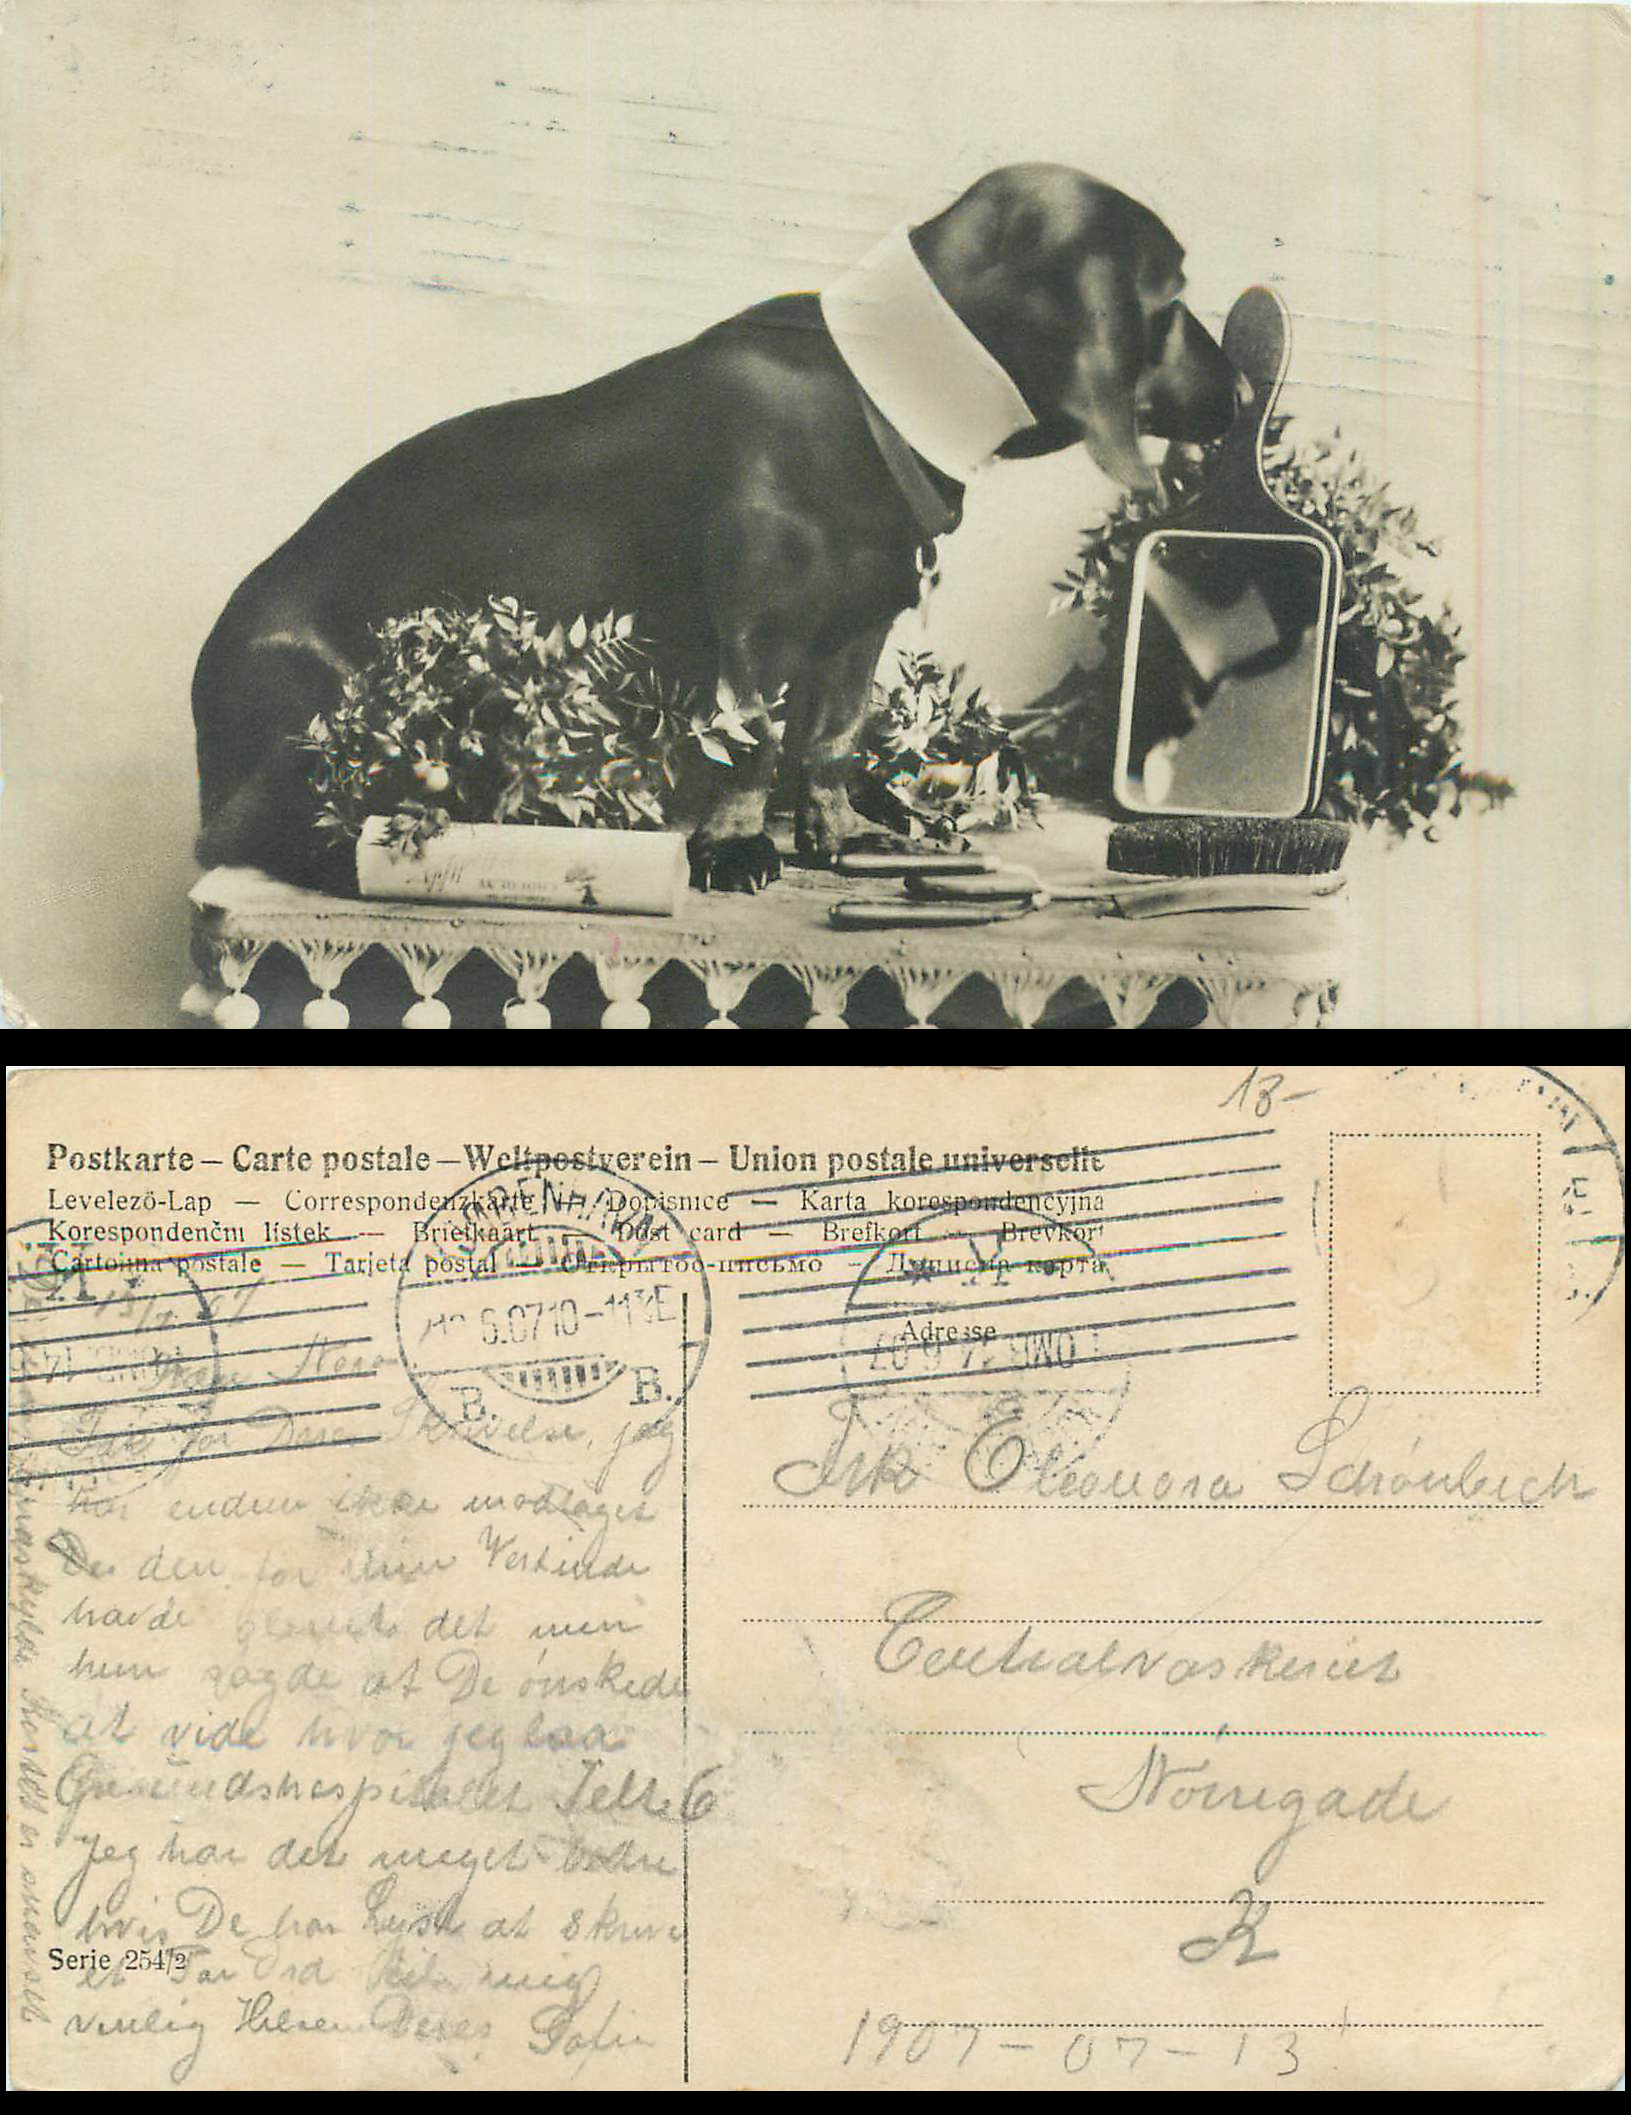 18-
Postkarte – Carte postale – Weltpostverein – Union postale universelle
Levelező-Lap — Correspondenzkarte — Dopisnice — Karta korespondencyjna
Korespondenčni listek — Briefkaart — Post card — Brefkort — Brevkort
Cartolina postale — Tarjeta postal — Открытое-письмо —
KJØBENHAVN
6.07 10-11
B. B.
OMB. 6 07
Adresse
Kære
Tak for Deres Skrivelse, jeg
har endnu ikke modtaget
den for min
havde det men
hun sagde at De ønskede
at vide hvor jeg laa
Telt 6
Jeg har det meget bedre
hvis De har Lyst at skrive
et Par Ord til mig
venlig Hilsen Deres Sofie
Frk Eleonora
Centralvaskeriet
Nørregade
K
Serie 254/2
1907-07-13